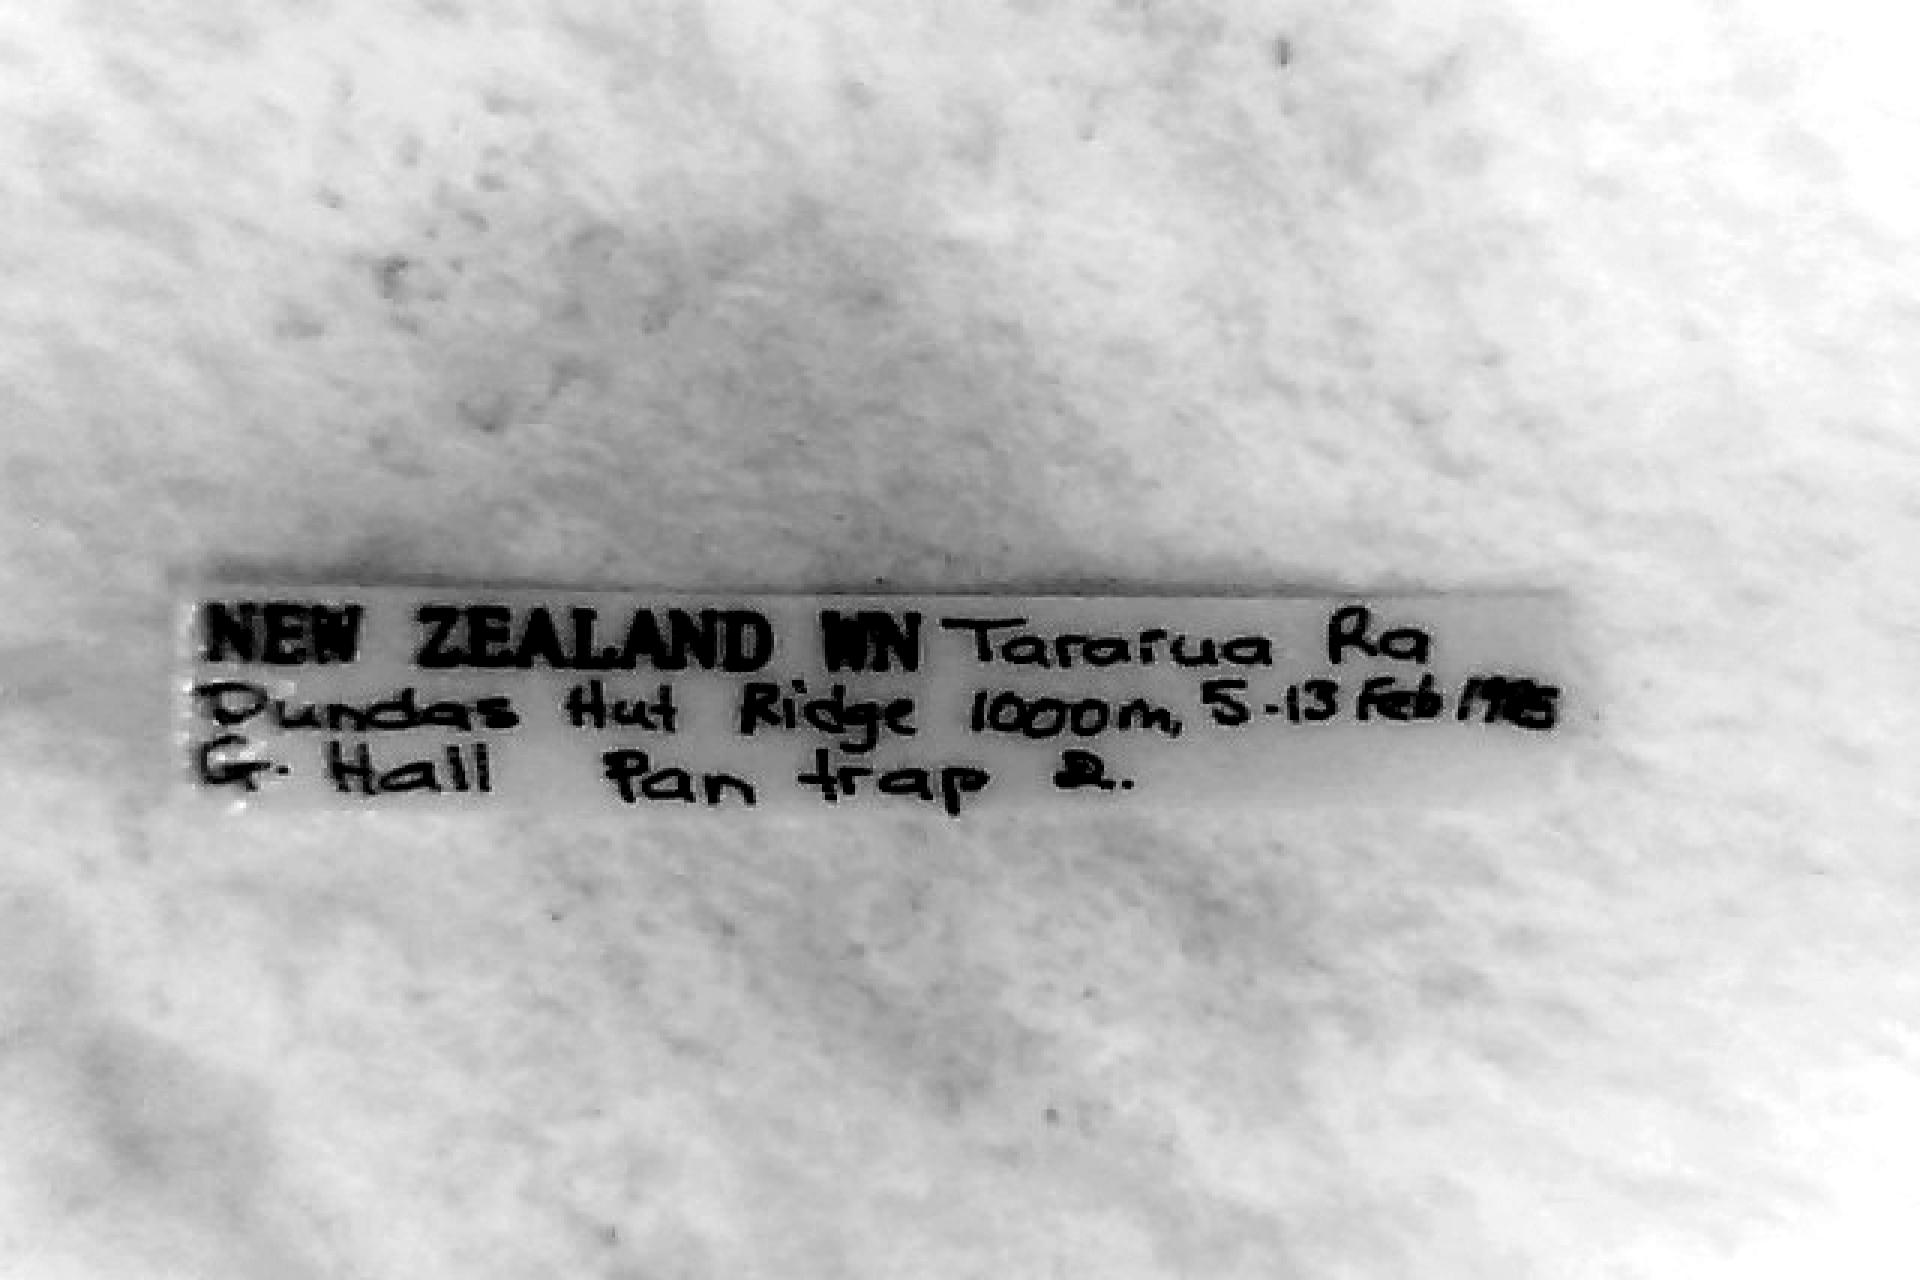 NEW ZEALAND WN Tararua Ra
Dundas Hut Ridge 1000m, 5-13 Feb 1985
G. Hall Pan trap 2.